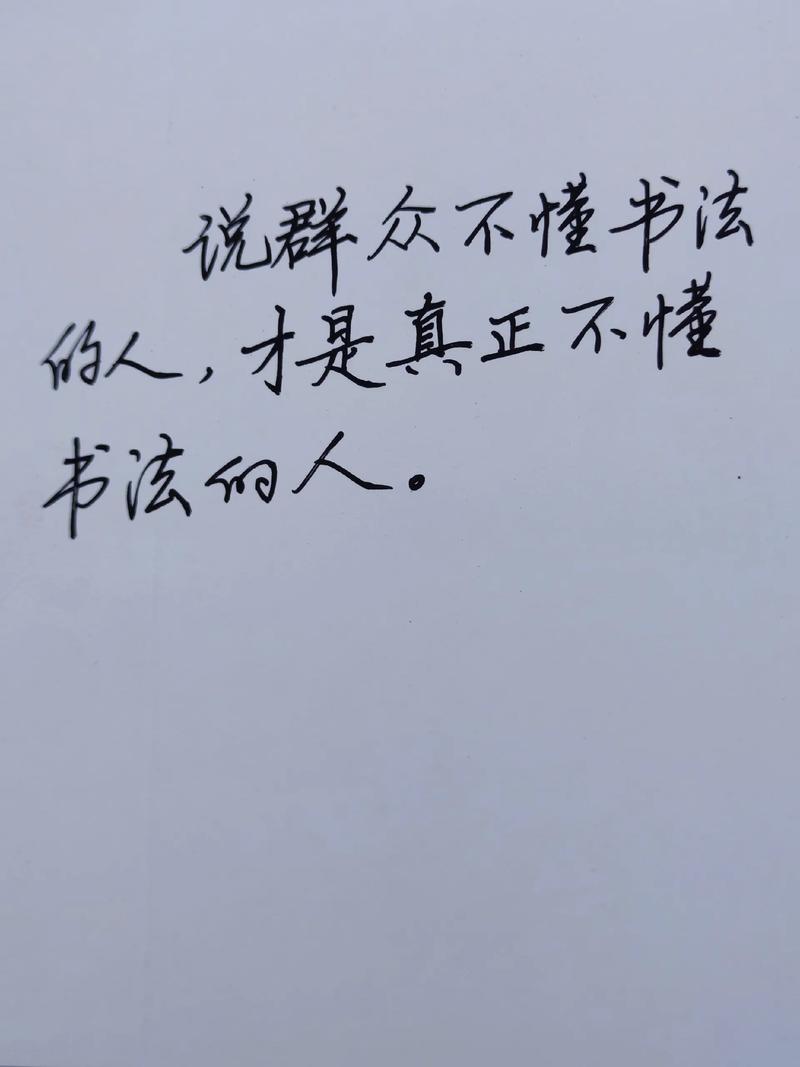 说群众不懂书法
的人，才是真正不懂
书法的人。